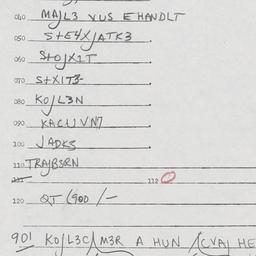 040 MA/L3 VUS EHANDLT
050 S+E4X/ATK3
060 S+O/X1T
070 S+X1T3-
080 KO/L3N
090 KACUVN7
100 JADK3
110 TRA/BSRN
111 112
120 QT (900 /-
901 KO/L3C/M3R A HUN /CVA/ HE